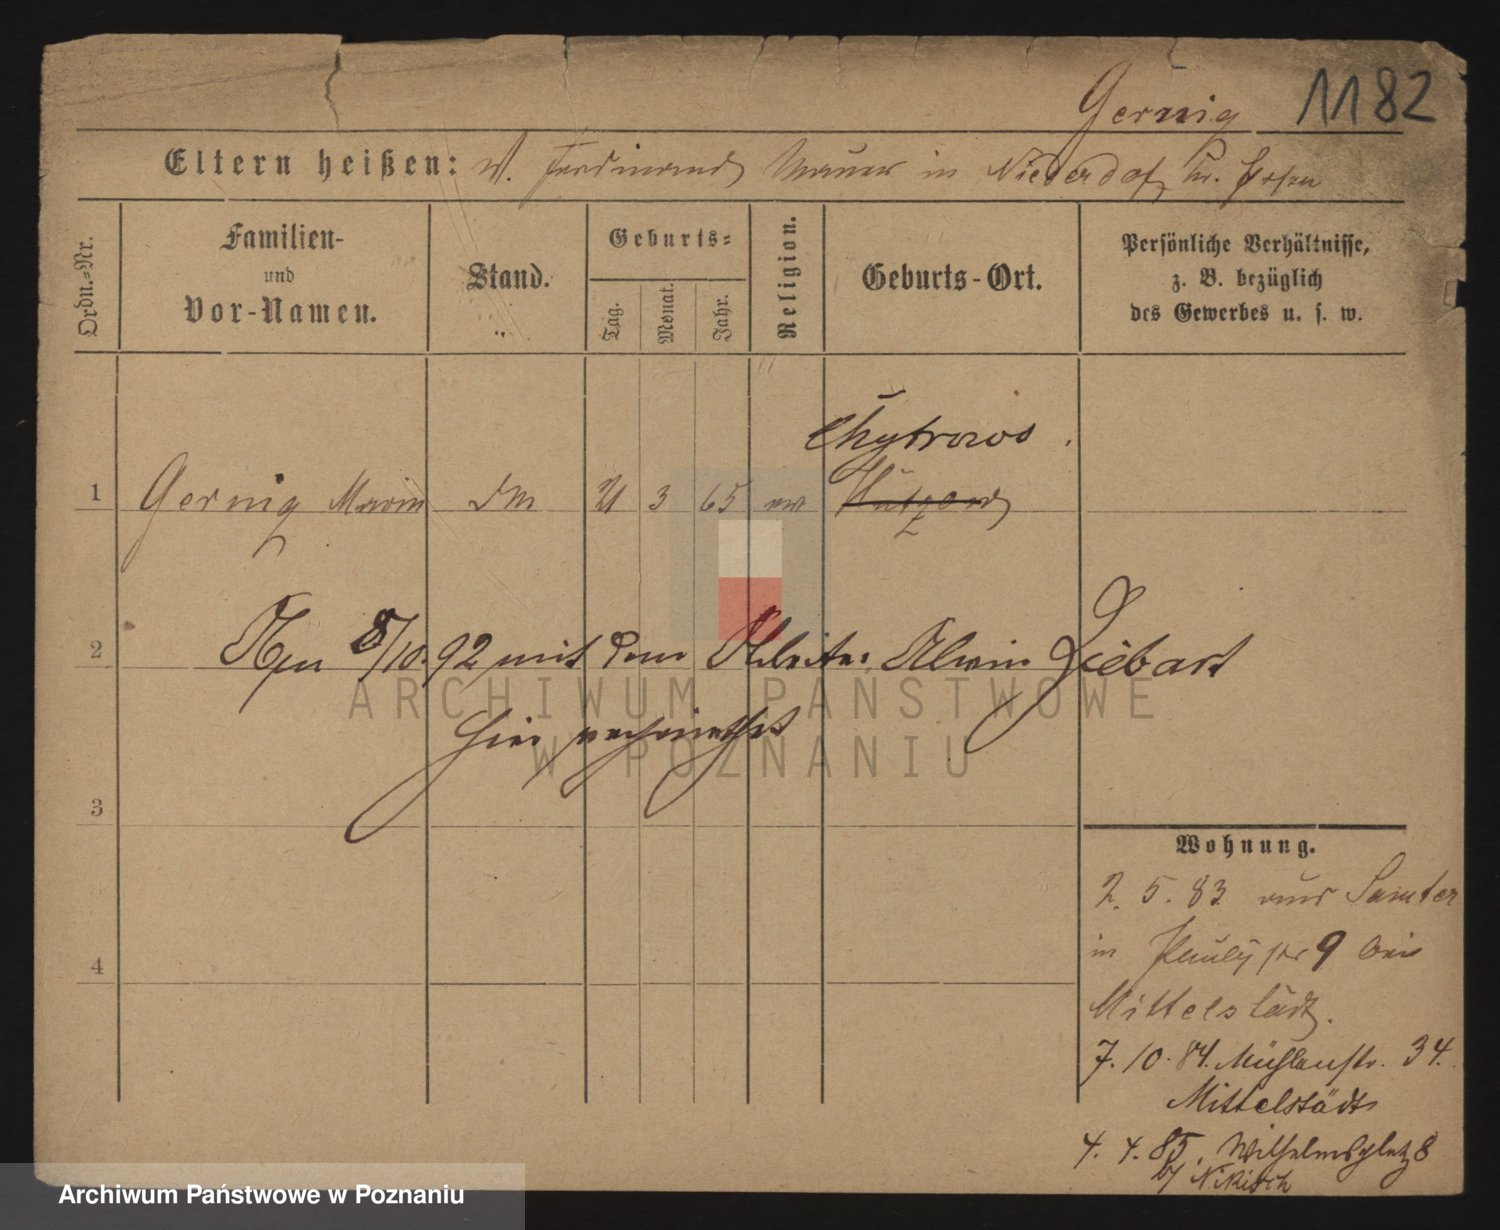 Gernig 1182
Eltern heißen: W. Ferdinand, Maurer in Niederdof, Kr.
Ordn.=Nr.
Familien-
und
Vor-Namen.
Stand.
Geburts=
Tag.
Monat.
Jahr.
Religion.
Geburts-Ort.
Persönliche Verhältnisse,
z. B. bezüglich
des Gewerbes u. s. w.
Chytrowo.
1 Gernig Maria DM 21 3 65 ev
2 Am 8/10.92 mit dem Arbeiter Alwin Liebart
hier verheirathet
3
4
Wohnung.
2. 5. 83 aus Samter
in Paulystr 9 bei
Mittelstädt.
7. 10. 84. Mühlenstr. 34.
Mittelstädt
4. 4. 85. Wilhelmsplatz 8
b/ Nikisch
ARCHIWUM PAŃSTWOWE
W POZNANIU
Archiwum Państwowe w Poznaniu